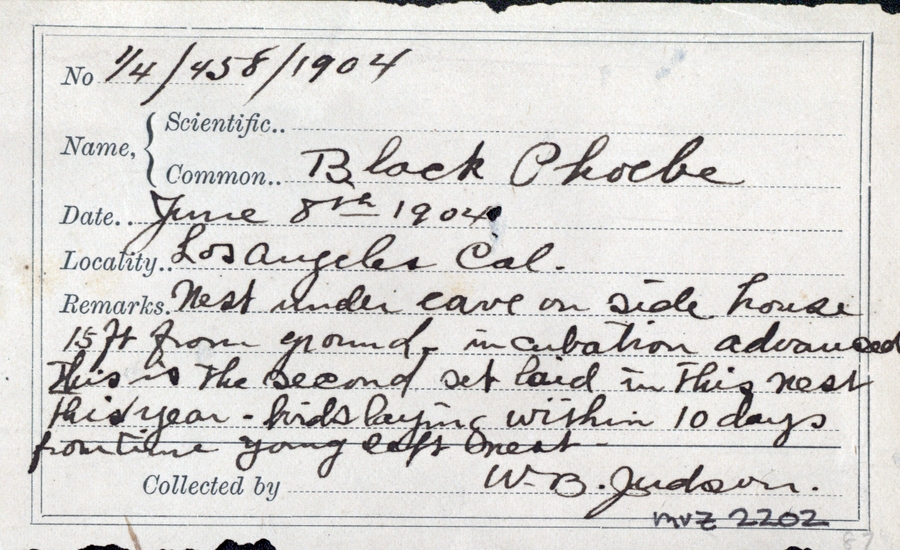 No 1/4/458/1904
Name, { Scientific..
Common.. Black Phoebe
Date.. June 8th 1904
Locality.. Los Angeles Cal.
Remarks. Nest under eave on side house
15 ft from ground - incubation advanced
This is the second set laid in this nest
this year - birds laying within 10 days
from time young left nest -
Collected by W. B. Judson.
mvz 2202
87